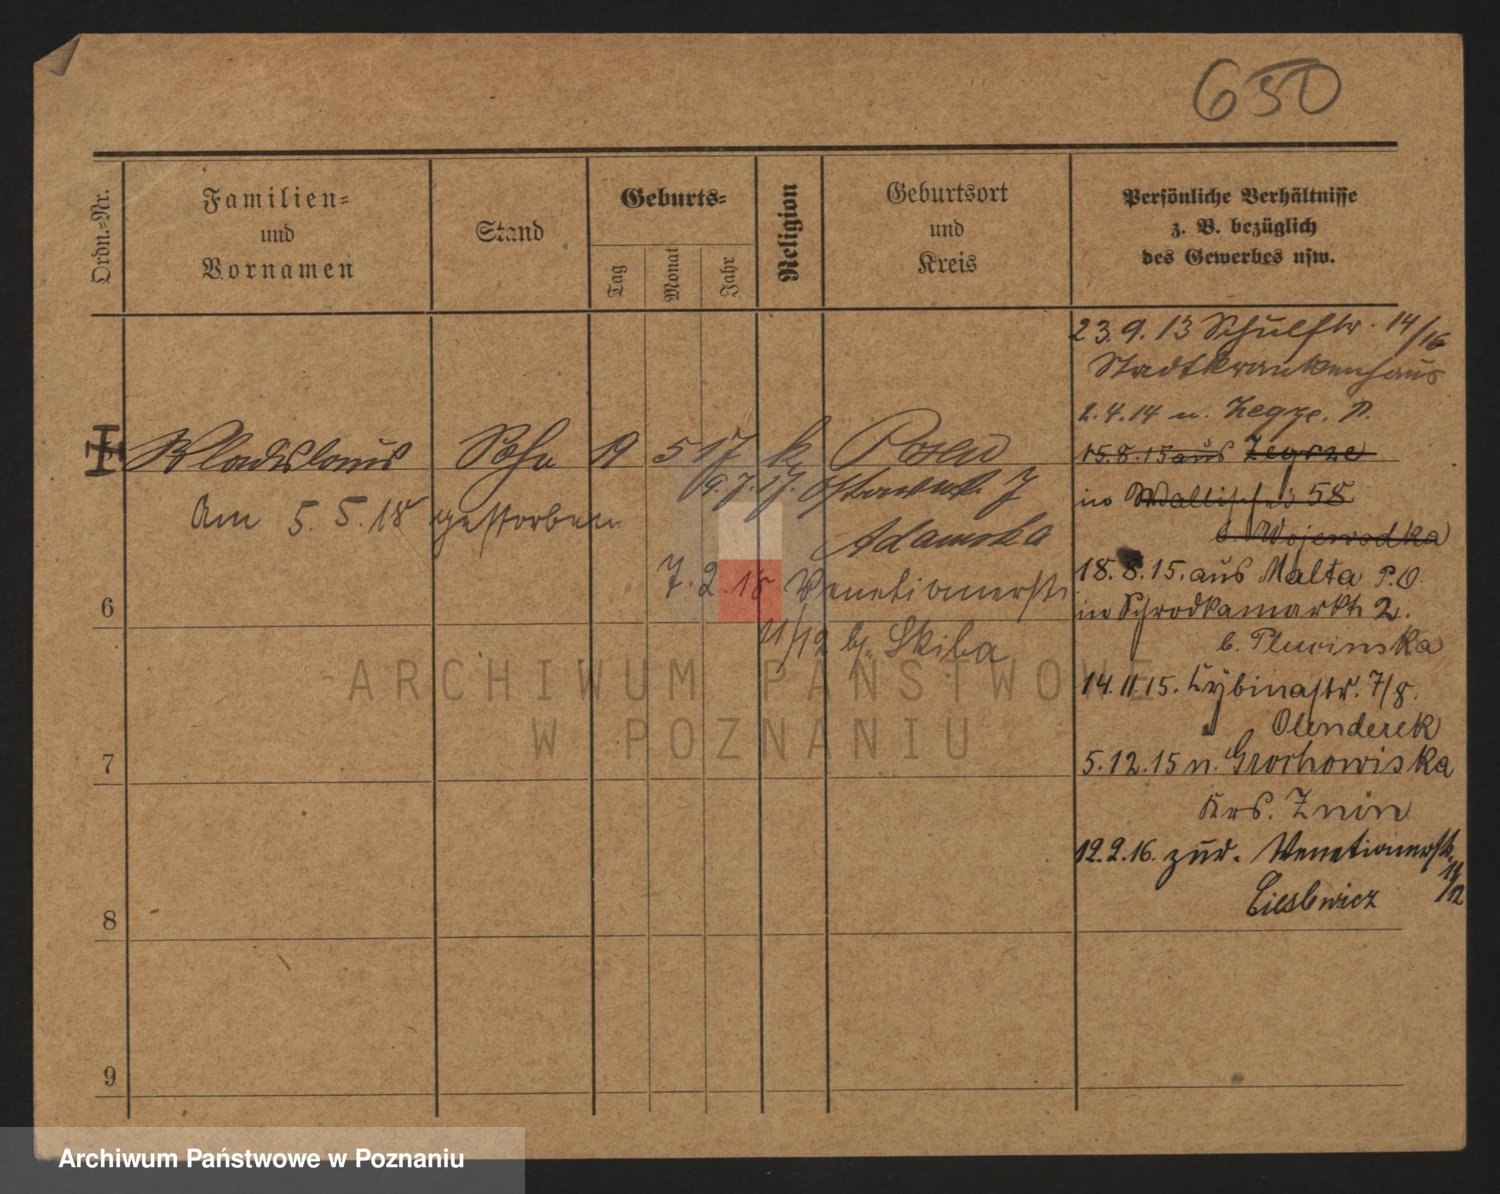 650
Ordn.-Nr.
Familien-
und
Vornamen
Stand
Geburts-
Tag
Monat
Jahr
Religion
Geburtsort
und
Kreis
Persönliche Verhältnisse
z. B. bezüglich
des Gewerbes usw.
23.9.13 Schulstr. 14/16
Stadtkrankenhaus
2.4.14 n. Zegrze. P.
Wladislaus Sohn 19 5 17 k Posen
15.8.15 aus Zegrze
9.7.17. Ostrowek. 7
in Wallischei 58
Am 5.5.18 gestorben
b. Wojewodka
Adamska
18.8.15. aus Malta P.O.
7.2.18 Venetianerstr.
6
in Schrodkamarkt 2.
11/12 b. Skiba
b. Pluwinska
14.11.15. Cybinastr. 7/8.
Olenderek
7
5.12.15 n. Grochowiska
Krs. Znin
12.2.16. zur. Venetianerstr.
11/12
8
9
ARCHIWUM PAŃSTWOWE
W POZNANIU
Archiwum Państwowe w Poznaniu